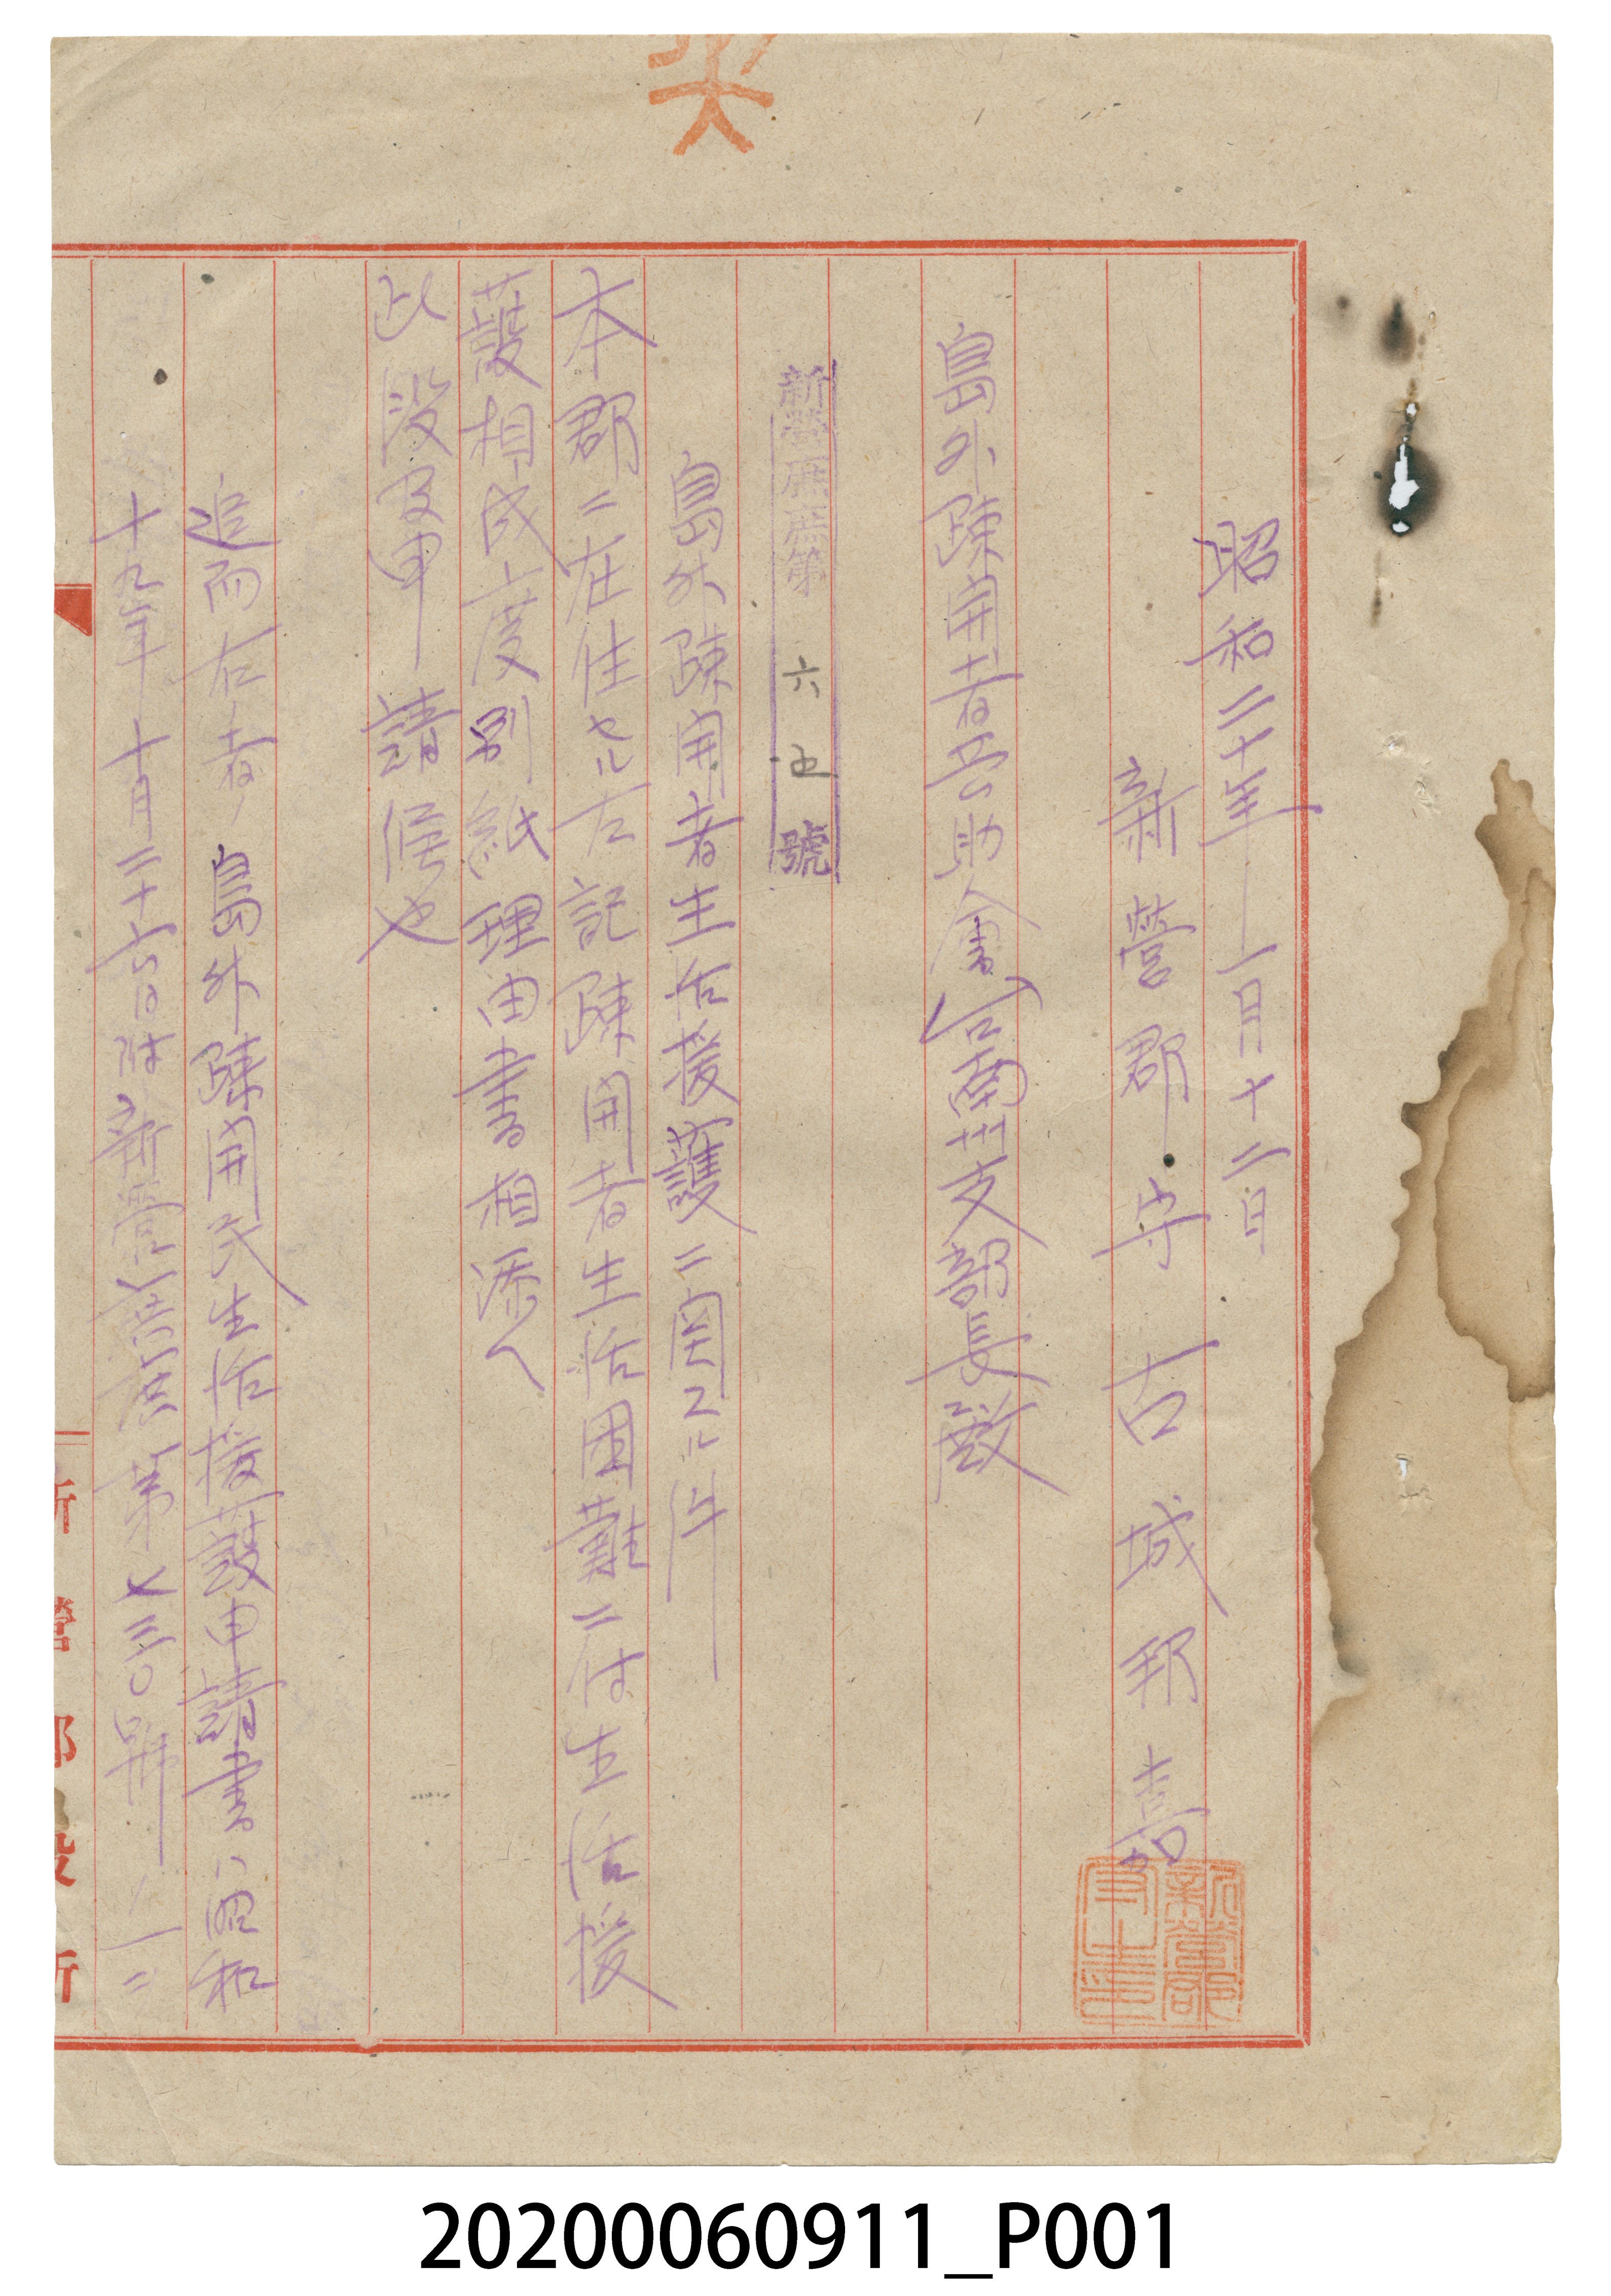 昭和二十年一月十二日
新營郡守 古城邦嘉
新營郡
守之印
島外疎開者共助會台南州支部長殿
新營庶庶第六五號
島外疎開者生活援護ニ関スル件
本郡ニ在住セル左記疎開者生活困難ニ付生活援
護相成度別紙理由書相添へ
此段及申請候也
追而右者島外疎開民生活援護申請書ハ昭和
十九年十月二十六日附新營庶庶第七三〇號ノ一ニ
新營郡役所
20200060911_P001